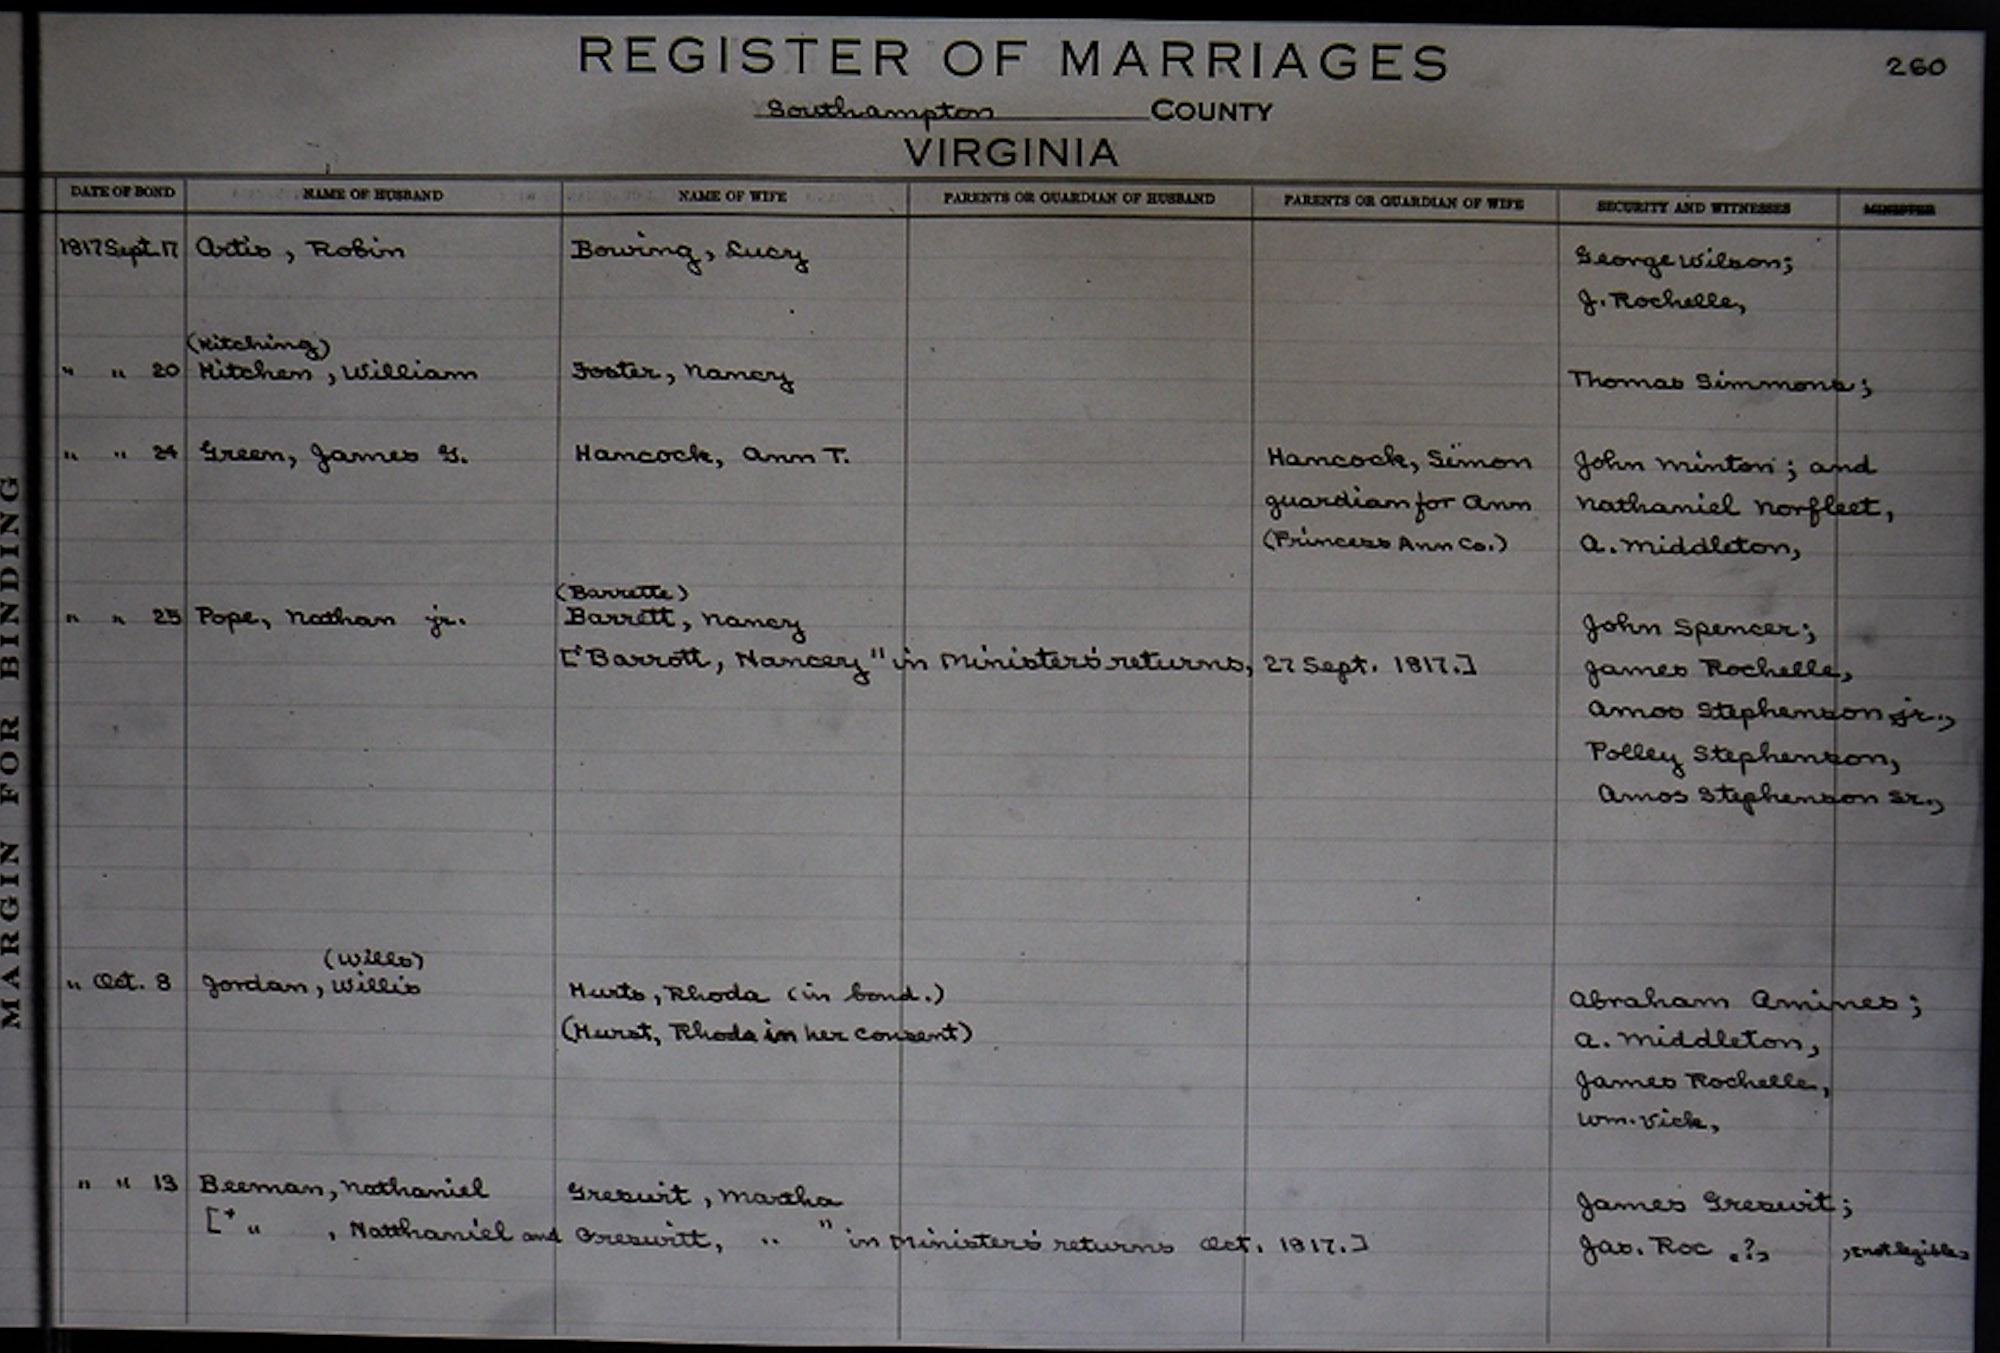 REGISTER OF MARRIAGES
260
Southampton COUNTY
VIRGINIA
DATE OF BOND NAME OF HUSBAND NAME OF WIFE PARENTS OR GUARDIAN OF HUSBAND PARENTS OR GUARDIAN OF WIFE SECURITY AND WITNESSES MINISTER
1817 Sept. 17 Artis, Robin Bowing, Lucy George Wilson;
J. Rochelle,
(Kitching)
" " 20 Kitchen, William Foster, Nancy Thomas Simmons;
" " 24 Green, James G. Hancock, Ann T. Hancock, Simon John Minton; and
guardian for Ann Nathaniel Norfleet,
(Princess Ann Co.) A. Middleton,
(Barrette)
" " 25 Pope, Nathan jr. Barrett, Nancy John Spencer;
["Barrott, Nancey" in Ministers' returns, 27 Sept. 1817.] James Rochelle,
Amos Stephenson jr.,
Polley Stephenson,
Amos Stephenson Sr.,
(Wills)
" Oct. 8 Jordan, Willis Hurts, Rhoda (in bond.) Abraham Amines;
(Hurst, Rhoda in her consent) A. Middleton,
James Rochelle,
Wm. Vick,
" " 13 Beeman, Nathaniel Greswit, Martha James Greswit;
[" " , Natthaniel and Greswitt, " " in Ministers' returns Oct. 1817.] Jas. Roc .?, , not legible,
MARGIN FOR BINDING